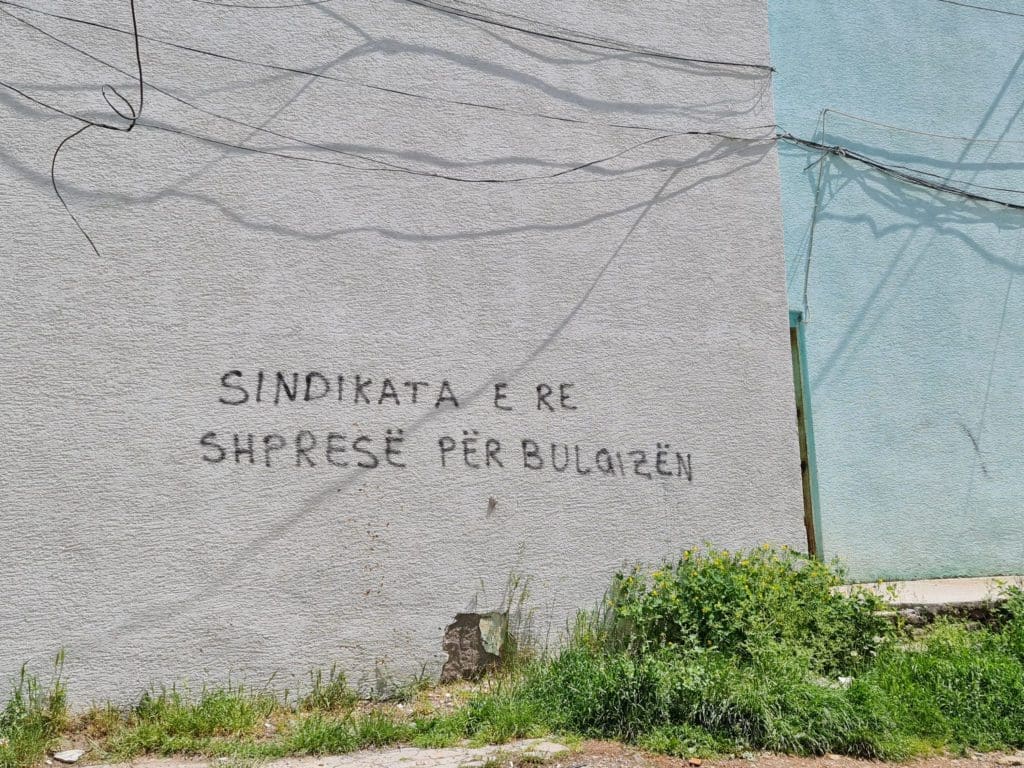 SINDIKATA E RE
SHPRESË PËR BULQIZËN